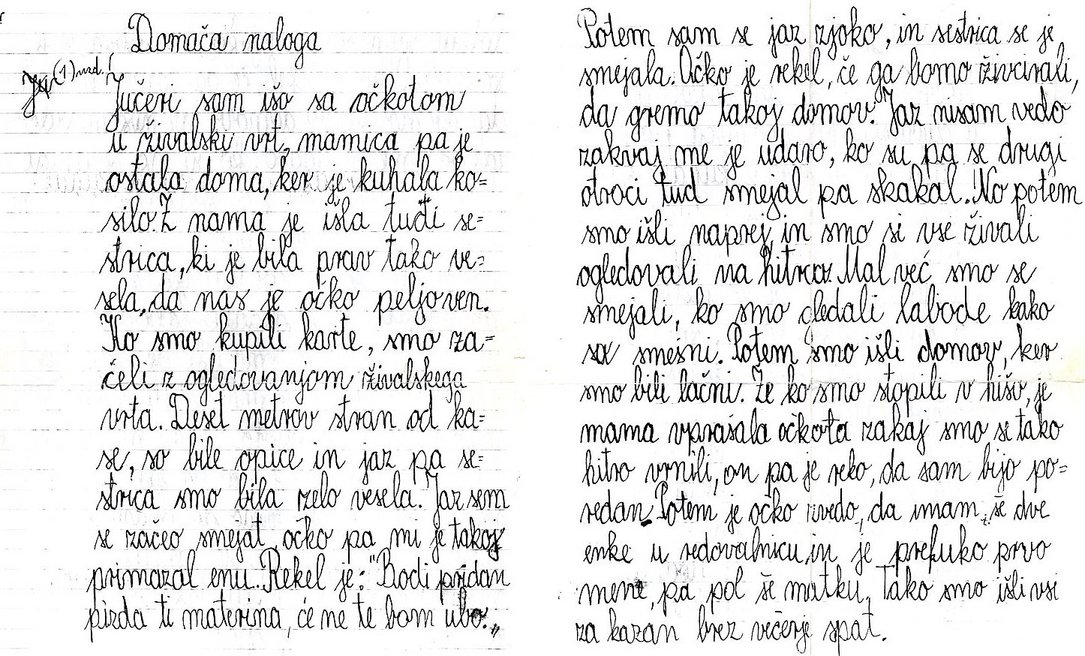 Domača naloga
(1) uvd.!
Jučeri sam išo sa očkotom
u živalski vrt, mamica pa je
ostala doma, ker je kuhala ko=
silo. Z nama je išla tuđi se=
strica, ki je bila prav tako ve=
sela, da nas je očko peljo ven.
Ko smo kupili karte, smo za=
čeli z ogledovanjom živalskega
vrta. Deset metrov stran od ka=
se, so bile opice in jaz pa se=
strica smo bila zelo vesela. Jaz sem
se začeo smejat, očko pa mi je takoj
primazal enu. Rekel je: "Bodi pridan
pizda ti materina, če ne te bom ubo."
Potem sam se jaz zjoko, in sestrica se je
smejala. Očko je rekel, če ga bomo živcirali,
da gremo takoj domov. Jaz nisam vedo
zakvaj me je udaro, ko su pa se drugi
otroci tud smejal pa skakal. No potem
smo išli naprej in smo si vse živali
ogledovali na hitro. Mal več smo se
smejali, ko smo gledali labode kako
so smešni. Potem smo išli domov, ker
smo bili lačni. Že ko smo stopili v hišo, je
mama vprašala očkota zakaj smo se tako
hitro vrnili, on pa je reko, da sam bijo po=
redan. Potem je očko zvedo, da imam še dve
enke u redovalnicu, in je prefuko prvo
mene, pa pol še matku. Tako smo išli vsi
za kazan brez večerje spat.